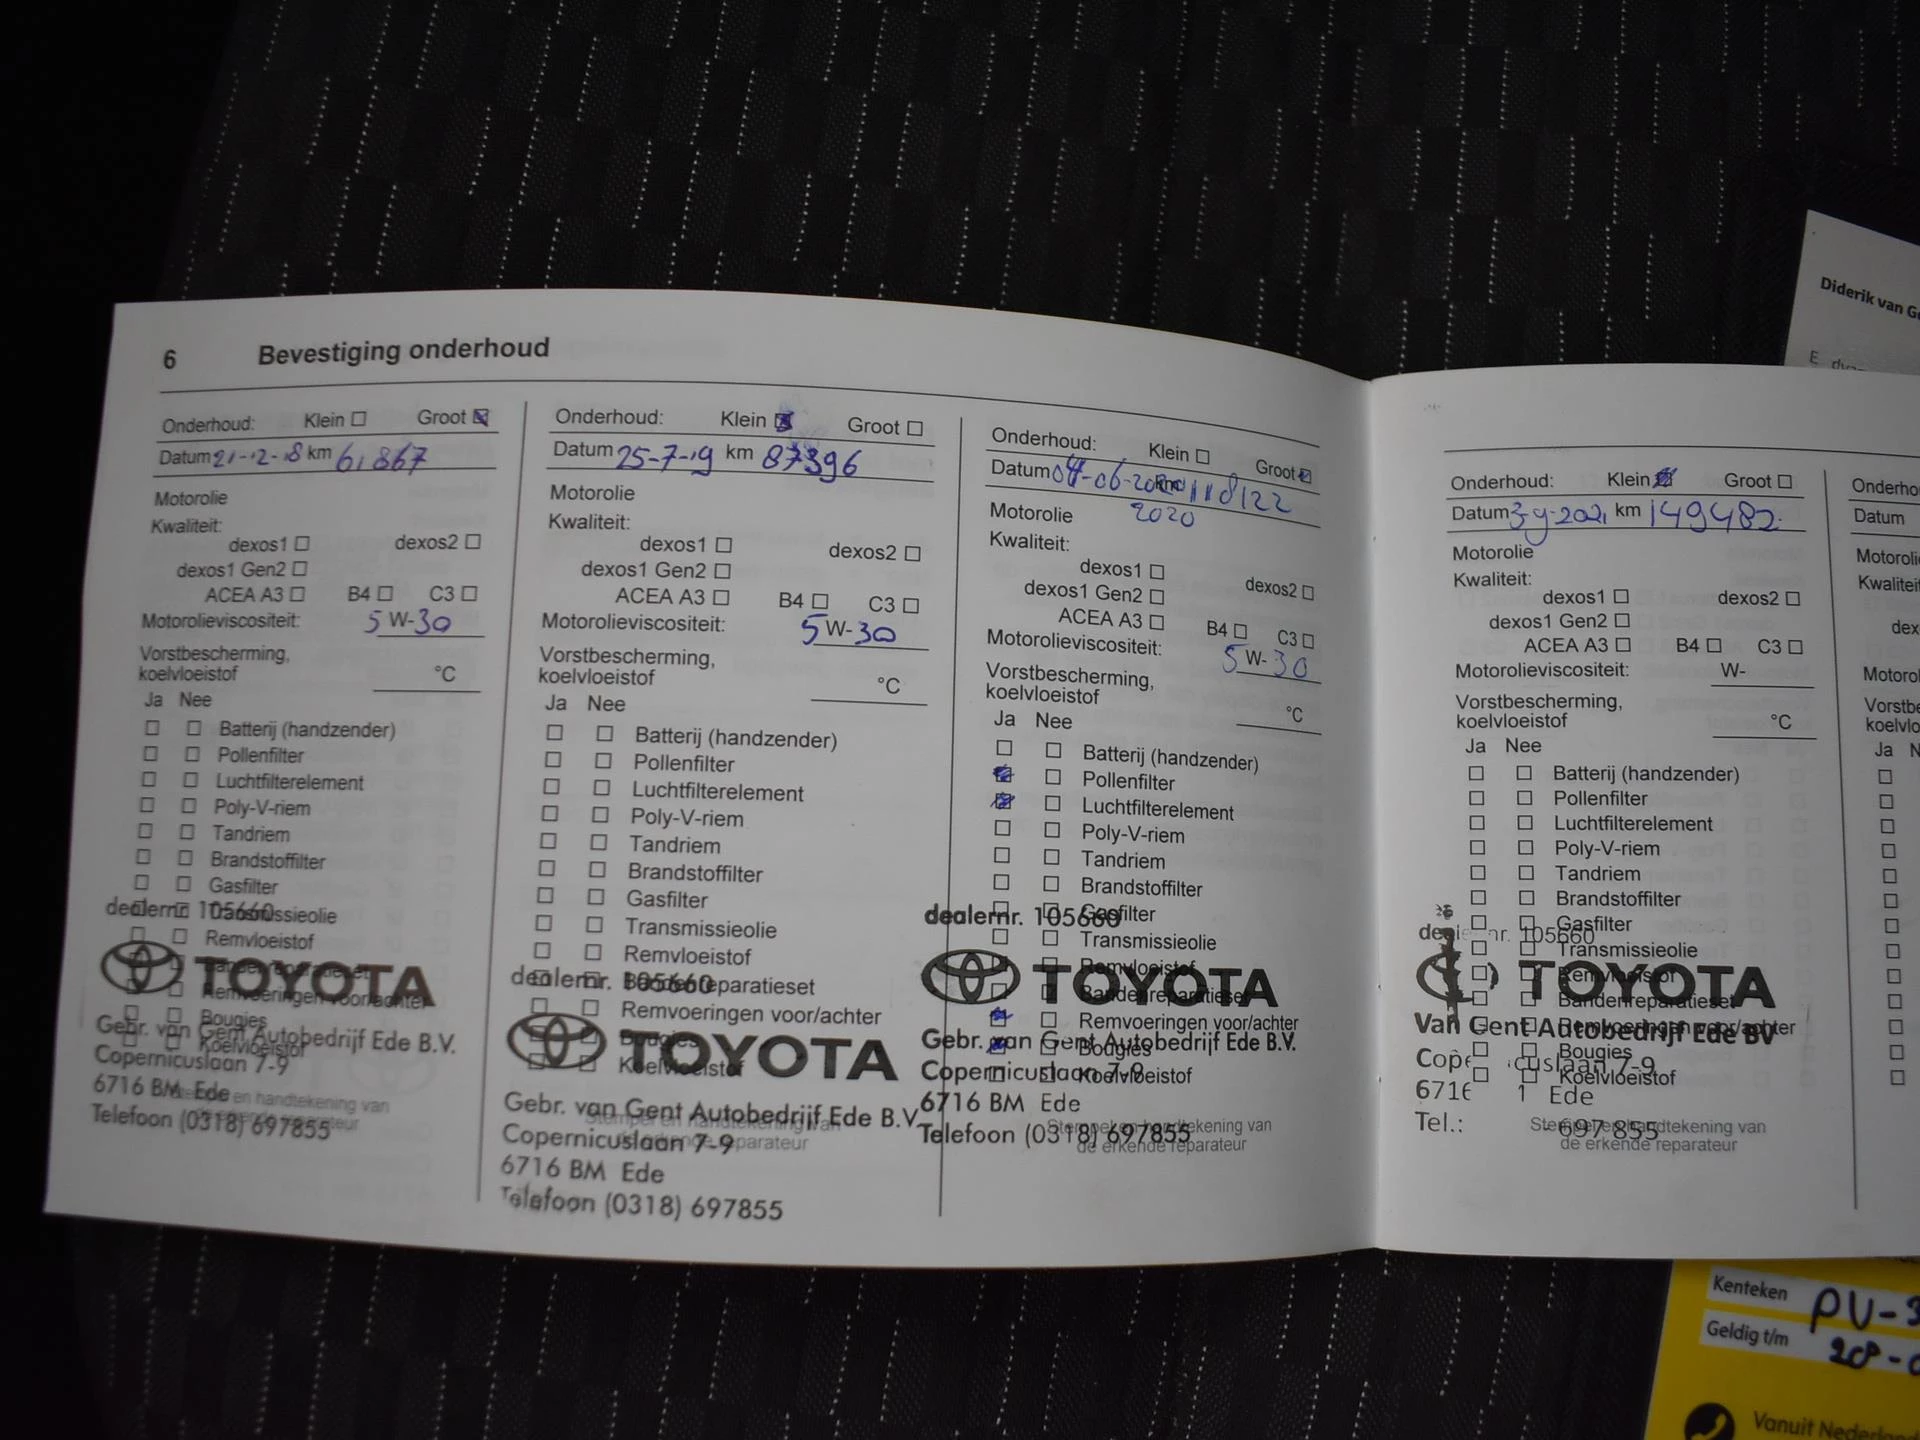 6 Bevestiging onderhoud
Onderhoud: Klein Groot
Datum 21-12-18 km 61867
Motorolie
Kwaliteit:
dexos1 dexos2
dexos1 Gen2
ACEA A3 B4 C3
Motorolieviscositeit: 5 W-30
Vorstbescherming,
koelvloeistof °C
Ja Nee
Batterij (handzender)
Pollenfilter
Luchtfilterelement
Poly-V-riem
Tandriem
Brandstoffilter
Gasfilter
Transmissieolie
dealernr. 105660
Remvloeistof
Bandenreparatieset
TOYOTA
Remvoeringen voor/achter
Bougies
Koelvloeistof
Gebr. van Gent Autobedrijf Ede B.V.
Copernicuslaan 7-9
6716 BM Ede
Telefoon (0318) 697855
Stempel en handtekening van
de erkende reparateur
Onderhoud: Klein Groot
Datum 25-7-19 km 87396
Motorolie
Kwaliteit:
dexos1 dexos2
dexos1 Gen2
ACEA A3 B4 C3
Motorolieviscositeit: 5 W-30
Vorstbescherming,
koelvloeistof °C
Ja Nee
Batterij (handzender)
Pollenfilter
Luchtfilterelement
Poly-V-riem
Tandriem
Brandstoffilter
Gasfilter
Transmissieolie
Remvloeistof
Bandenreparatieset
dealernr. 105660
Remvoeringen voor/achter
Bougies
TOYOTA
Koelvloeistof
Gebr. van Gent Autobedrijf Ede B.V.
Stempel en handtekening van
de erkende reparateur
Copernicuslaan 7-9
6716 BM Ede
Telefoon (0318) 697855
Onderhoud: Klein Groot
Datum 04-06-2020 km 118122
2020
Motorolie
Kwaliteit:
dexos1 dexos2
dexos1 Gen2
ACEA A3 B4 C3
Motorolieviscositeit: 5 W-30
Vorstbescherming,
koelvloeistof °C
Ja Nee
Batterij (handzender)
Pollenfilter
Luchtfilterelement
Poly-V-riem
Tandriem
Brandstoffilter
Gasfilter
dealernr. 105660
Transmissieolie
Remvloeistof
TOYOTA
Bandenreparatieset
Remvoeringen voor/achter
Gebr. van Gent Autobedrijf Ede B.V.
Bougies
Koelvloeistof
Copernicuslaan 7-9
6716 BM Ede
Telefoon (0318) 697855
Stempel en handtekening van
de erkende reparateur
Onderhoud: Klein Groot
Datum 3-9-2021 km 149482
Motorolie
Kwaliteit:
dexos1 dexos2
dexos1 Gen2
ACEA A3 B4 C3
Motorolieviscositeit: W-
Vorstbescherming,
koelvloeistof °C
Ja Nee
Batterij (handzender)
Pollenfilter
Luchtfilterelement
Poly-V-riem
Tandriem
Brandstoffilter
Gasfilter
nr. 105660
Transmissieolie
Remvloeistof
TOYOTA
Bandenreparatieset
Remvoeringen voor/achter
Van Gent Autobedrijf Ede BV
Bougies
Koelvloeistof
7-9
Ede
Tel.: 697 855
Stempel en handtekening van
de erkende reparateur
Onderho
Datum
Motoroli
Kwaliteit
dex
Motorol
Vorstbe
koelvlo
Ja N
Diderik van Ge
Kenteken PU-3
Geldig t/m 28-0
Vanuit Nederland